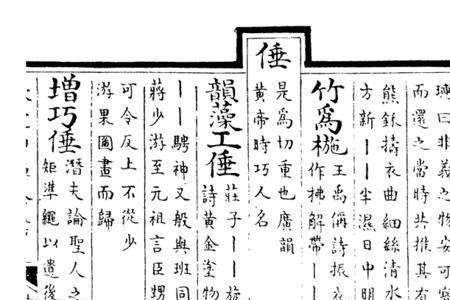 曰非義之物安可
而還之當時共推其
熊鉌擣衣曲細絲清水
方新——半濕日中明
竹爲椸王禹偁詩振衣
作拂解帶——
倕
是爲切重也廣韻
黄帝時巧人名
韻藻工倕莊子——旋
詩黄金塗物
——騁神又般與班同
蔣少游至元祖言臣甥
可令反上不從少
游果圖畫而歸
增巧倕潛夫論聖人之
矩準繩以遺後